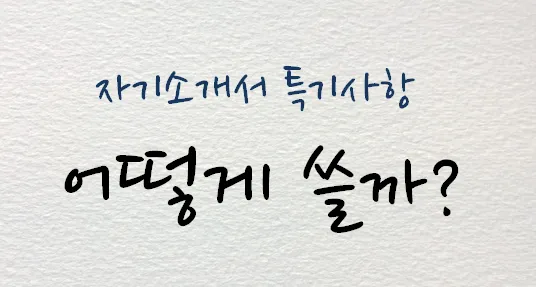 자기소개서 특기사항
어떻게 쓸까?